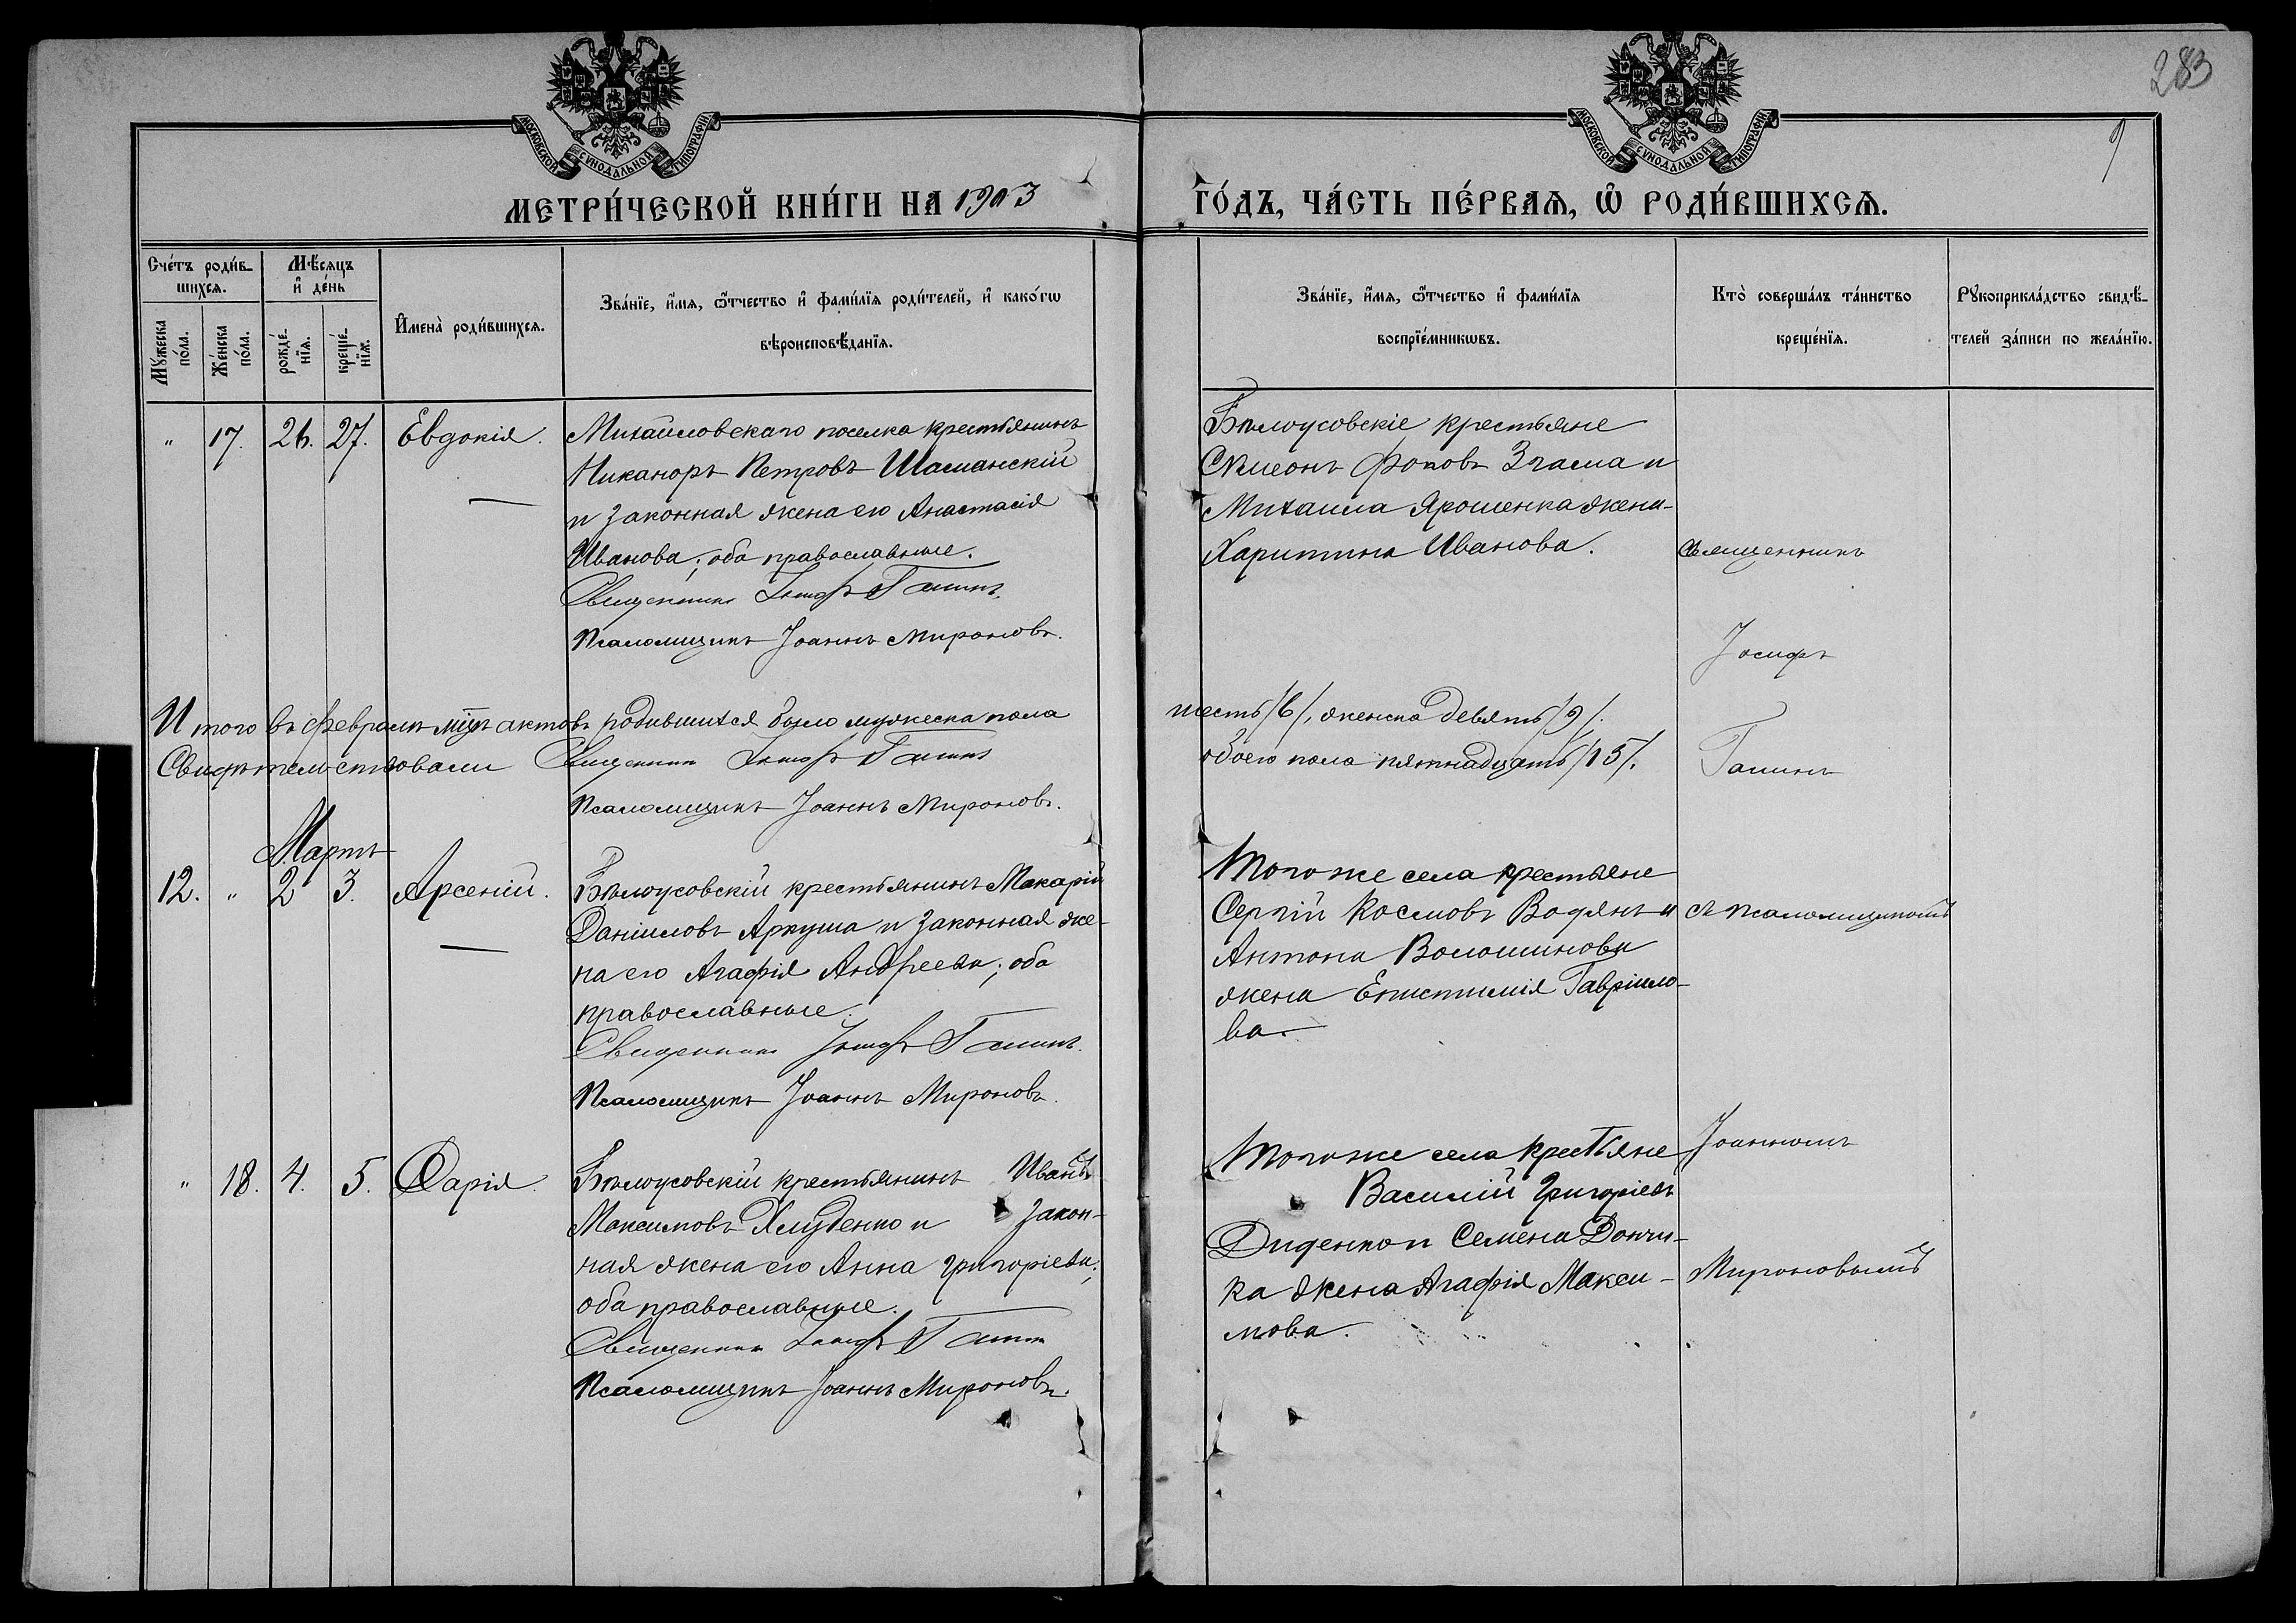 283
9
МОСКОВСКОЙ СѴНОДАЛЬНОЙ ТИПОГРАФІИ
МОСКОВСКОЙ СѴНОДАЛЬНОЙ ТИПОГРАФІИ
МЕТРИ́ЧЕСКОЙ КНИ́ГИ НА 1903
ГО́ДЪ, ЧА́СТЬ ПЕ́РВАѦ, Ѡ҆ РОДИ́ВШИХСѦ.
Сче́тъ роди́в-
шихсѧ.
Мѣ́сѧцъ
и҆ де́нь
Мꙋ́жеска
по́ла.
Же́нска
по́ла.
рожде́-
нїѧ.
креще́-
нїѧ.
И҆мена̀ роди́вшихсѧ.
Зва́нїе, и҆́мѧ, ѻ҆́тчество и҆ фами́лїѧ роди́телей, и҆ како́гѡ
вѣроисповѣ́данїѧ.
Зва́нїе, и҆́мѧ, ѻ҆́тчество и҆ фами́лїѧ
воспрїе́мникѡвъ.
Кто̀ соверша́лъ та́инство
креще́нїѧ.
Рꙋкоприкла́дство свидѣ́-
телей за́писи по жела́нїю.
" 17. 26. 27. Евдокія. Михайловскаго поселка крестьянинъ
Никаноръ Петровъ Шаманскій
и законная жена его Анастасія
Иванова; оба православные.
Священникъ Іосифъ Галинъ.
Псаломщикъ Іоаннъ Мироновъ.
Бѣлоусовскіе крестьяне
Сѵмеонъ Фоковъ Згама и
Михаила Ярошенка жена-
Харитина Иванова.
Священникъ
Іосифъ
Галинъ
Итого въ февралѣ мцѣ актовъ родившихся было мужеска пола
шесть /6/, женска девять /9/.
Свидѣтельствовали Священникъ Іосифъ Галинъ
обоего пола пятнадцать /15/.
Псаломщикъ Іоаннъ Мироновъ.
Мартъ
12. " 2 3. Арсеній. Бѣлоусовскій крестьянинъ Макарій
Даніиловъ Аркуша и законная же-
на его Агафія Андреева; оба
православные.
Священникъ Іосифъ Галинъ.
Псаломщикъ Іоаннъ Мироновъ.
Того же села крестьяне
Сергій Космовъ Водянъ и
Антона Волошинова
жена Епистимія Гавріило-
ва.
съ псаломщикомъ
Іоанномъ
Мироновымъ
" 18. 4. 5. Дарія. Бѣлоусовскій крестьянинъ Иванъ
Максимовъ и закон-
ная жена его Анна Григоріева;
оба православные.
Священникъ Іосифъ Галинъ
Псаломщикъ Іоаннъ Мироновъ.
Того же села крестьяне
Василій Григоріевъ
Диденко и Семена Дончи-
ка жена Агафія Макси-
мова.